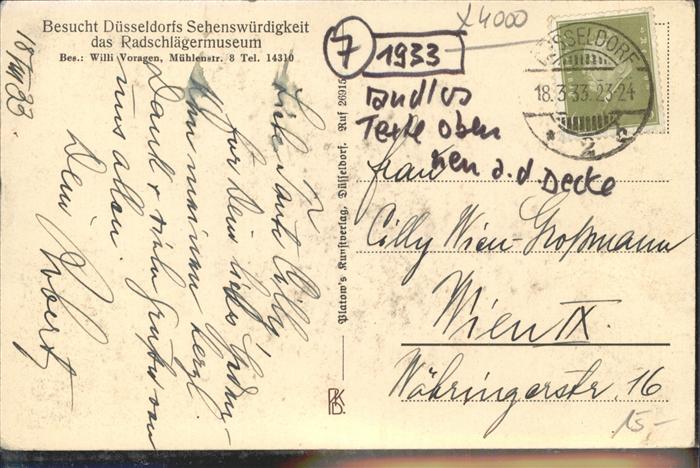 Besucht Düsseldorfs Sehenswürdigkeit
das Radschlägermuseum
Bes.: Willi Voragen, Mühlenstr. 8 Tel. 14310
18/III 33
Liebe Tante Cilly
für Dein liebes
nimm meinen herzl.
Dank & viele Grüße von
uns allen.
Dein Robert
Platow's Kunstverlag, Düsseldorf. Ruf 26915
PKD
x4000
7 1933
randlos
Texte oben
a.d. Decke
DÜSSELDORF
18.3.33.23-24
* 2 c
Frau
Cilly Wien-Großmann
Wien IX.
Währingerstr. 16
15-